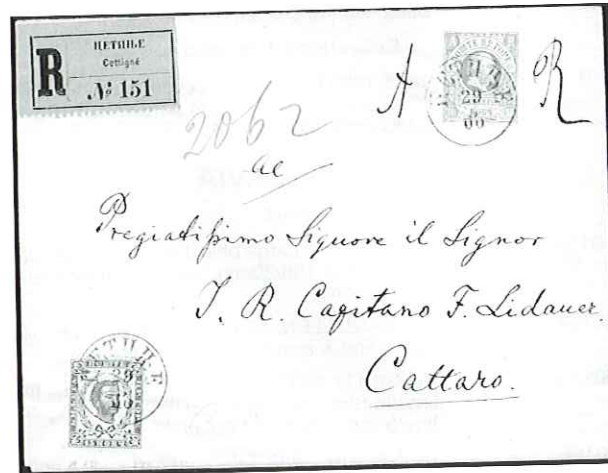 R
ЦЕТИЊЕ
Cettigné
№ 151
A R
29
2062
ac
Pregiatissimo Signore il Signor
I. R. Capitano F. Lidauer
Cattaro.
29